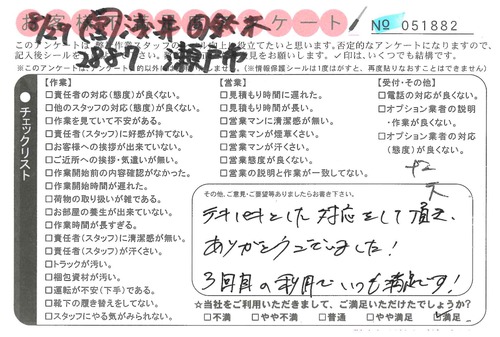 お客様 アンケート № 051882
8/29
浅井 鈴木
3887 瀬戸市
このアンケートは、
記入後シールで
【作業】
□責任者の対応(態度)が良くない。
□他のスタッフの対応(態度)が良くない。
□作業を見ていて不安がある。
□責任者(スタッフ)に好感が持てない。
□お客様への挨拶が出来ていない。
□ご近所への挨拶・気遣いが無い。
□作業開始前の内容確認がなかった。
□作業開始時間が遅れた。
□荷物の取り扱いが雑である。
□お部屋の養生が出来ていない。
□作業時間が長すぎる。
□責任者(スタッフ)に清潔感が無い。
□責任者(スタッフ)が汗くさい。
□トラックが汚い。
□梱包資材が汚い。
□運転が不安(下手)である。
□靴下の履き替えをしてない。
□スタッフにやる気がみられない。
【営業】
□見積もり時間に遅れた。
□見積もり時間が長い。
□営業マンに清潔感が無い。
□営業マンが煙草くさい。
□営業マンが汗くさい。
□営業態度が良くない。
□営業の説明と作業が一致してない。
【受付・その他】
□電話の対応が良くない。
□オプション業者の説明
・作業が良くない。
□オプション業者の対応
(態度)が良くない。
チェックリスト
その他、ご意見・ご要望等ありましたらお書き下さい。
テキパキとした対応をして頂き、
ありがとうございました!
3回目の利用で、いつも満足です!
☆当社をご利用いただきまして、ご満足いただけたでしょうか?
□不満 □やや不満 □普通 □やや満足 □満足